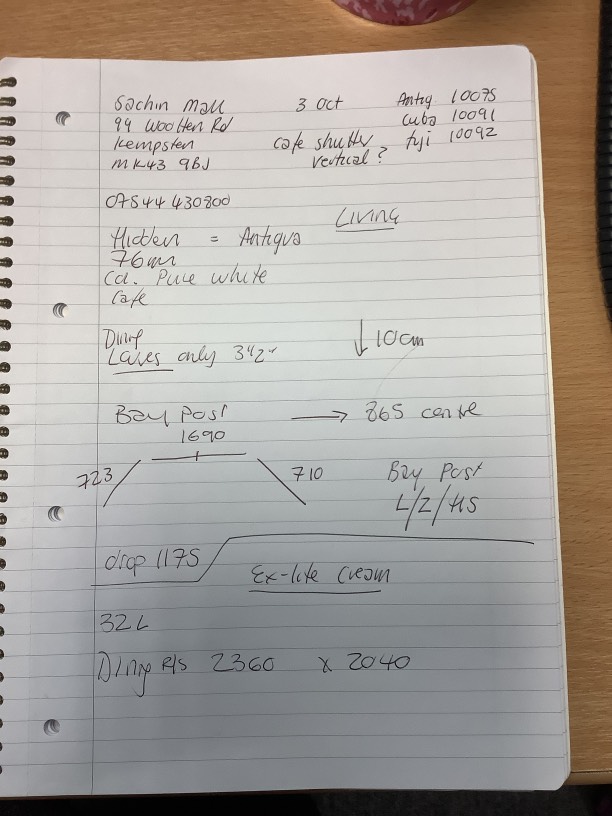 Sachin Mall 3 Oct Antig 10075
99 Wootten Rd Cuba 10091
Kempsten Cafe shutter Fiji 10092
MK43 9BJ vertical?
07544 430800
Living
Hidden = Antigua
76mm
Col. Pure white
Cafe
Dining
only 3½" ↓10cm
Bay Post → 865 centre
1690
723 710 Bay Post
L/Z/HS
drop 1175
Ex-lite Cream
32L
Dining R/S 2360 x 2040